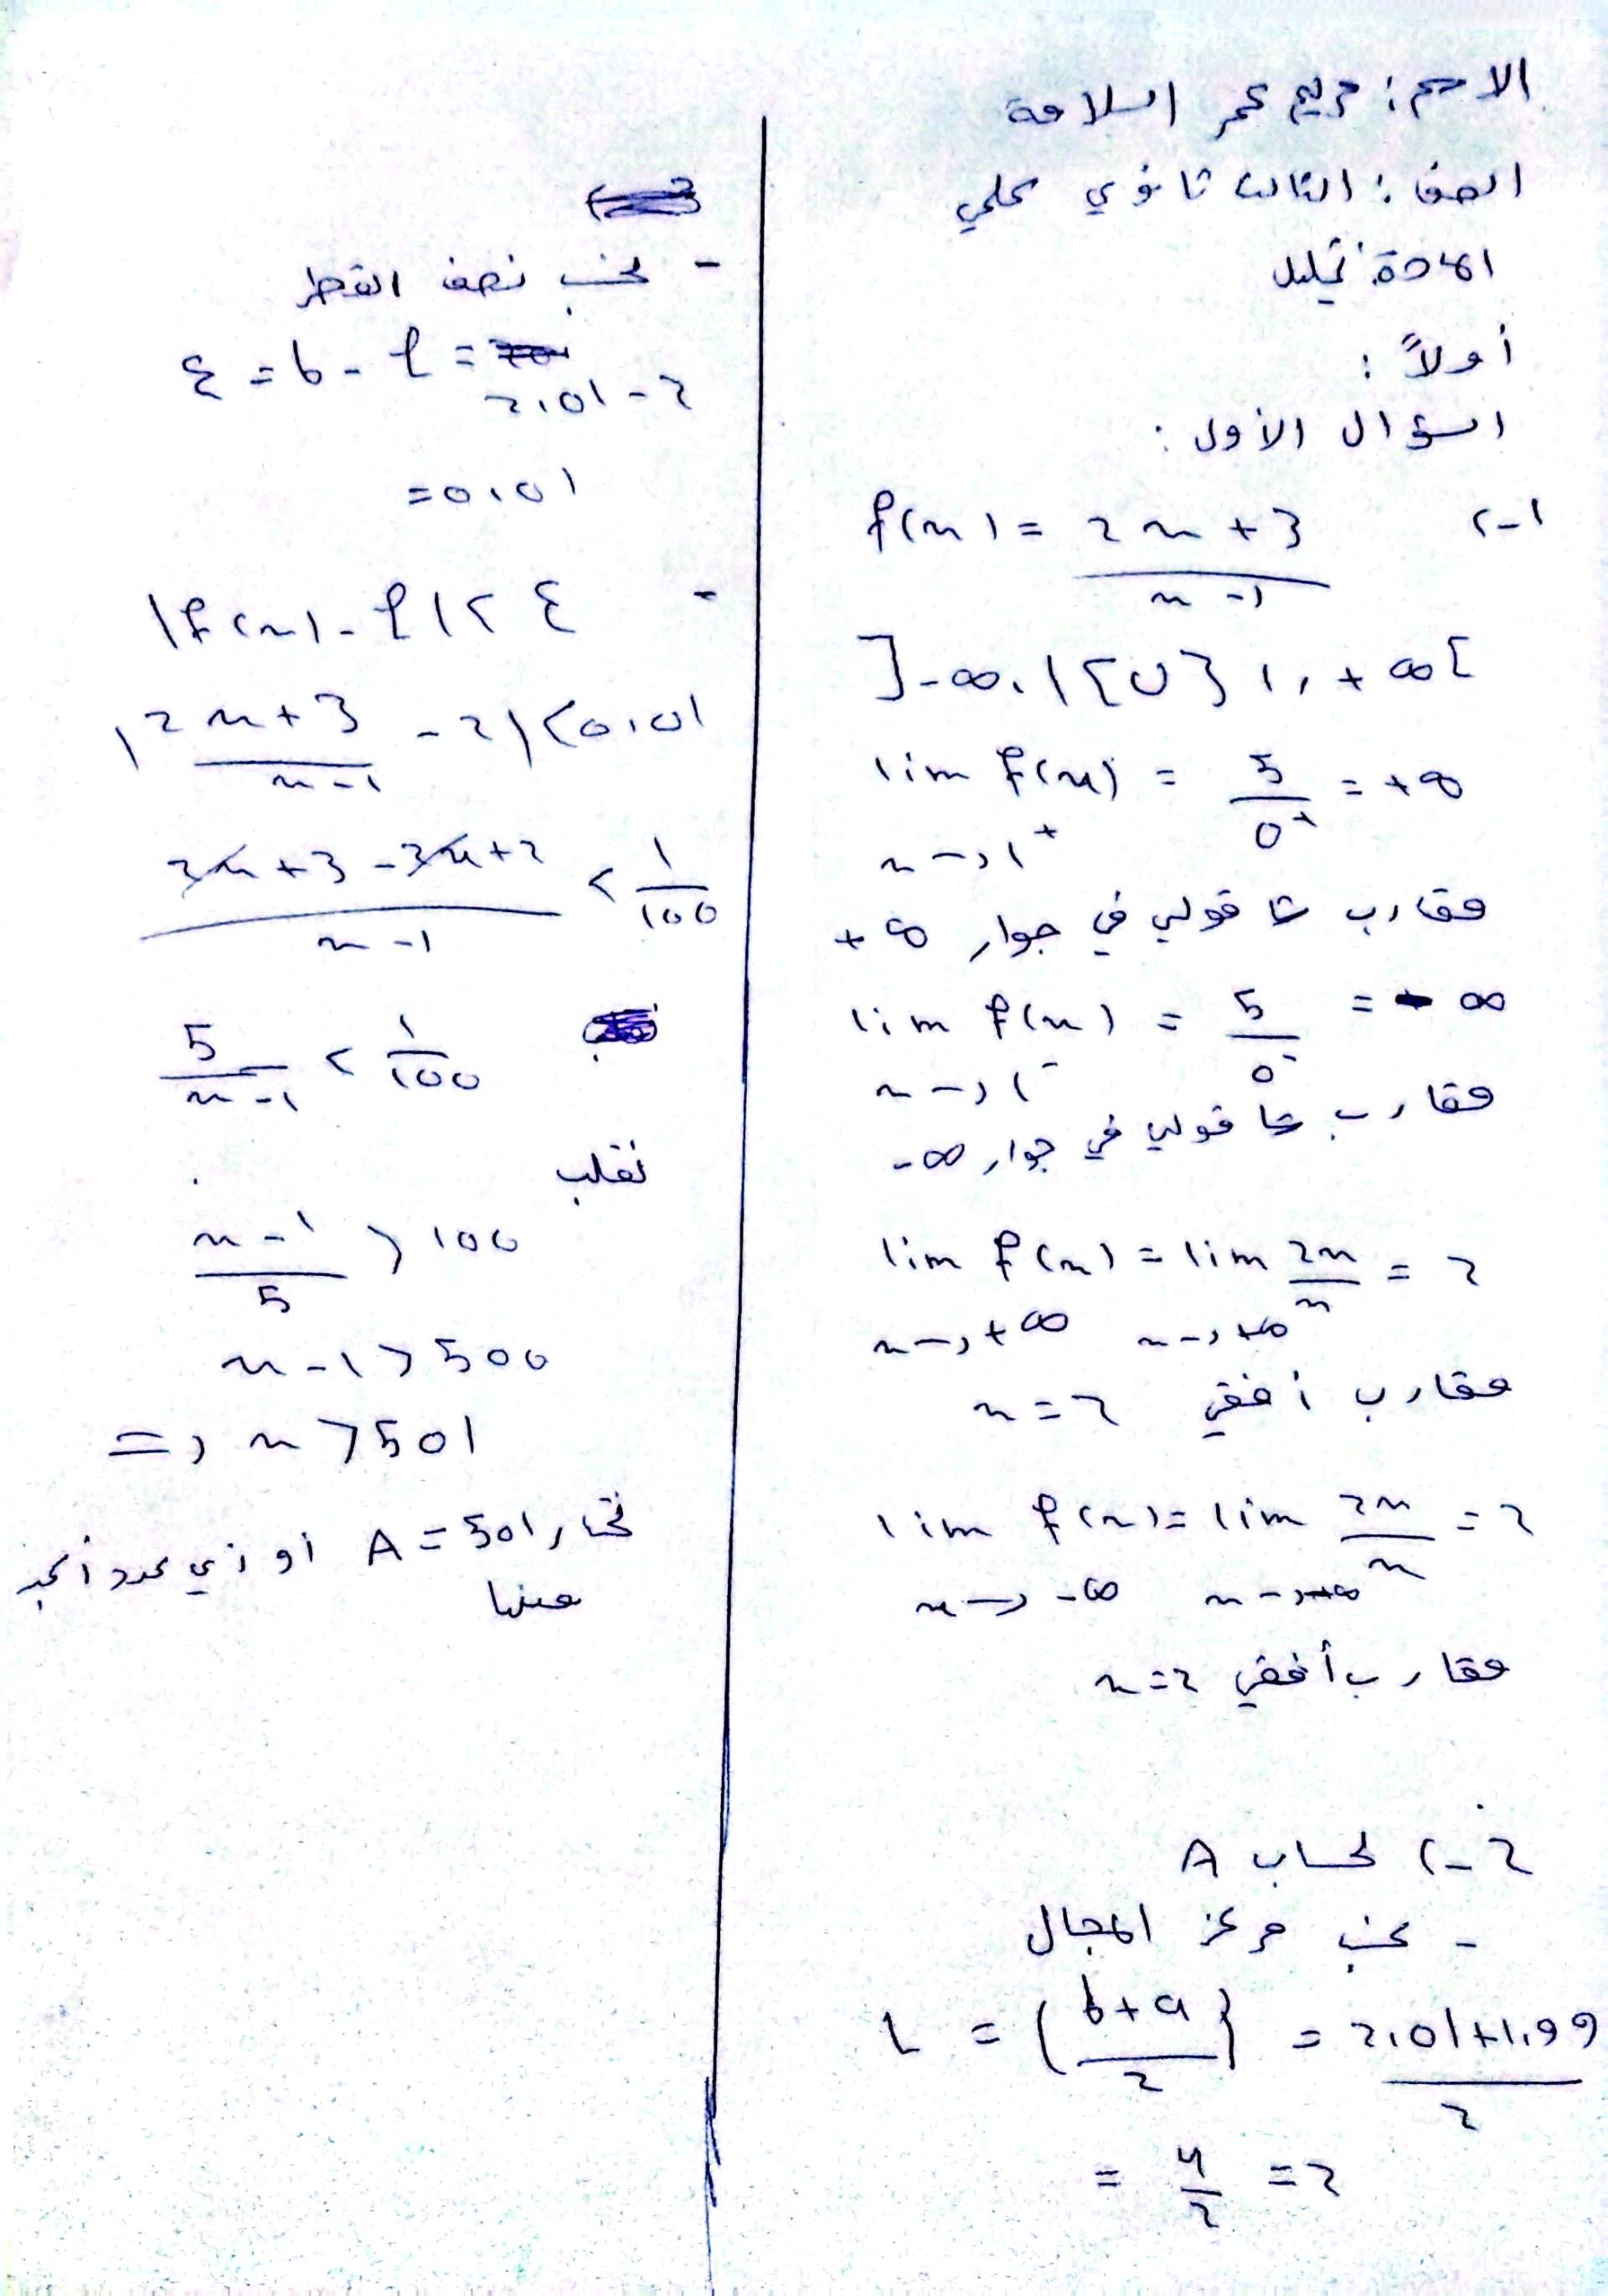 الاسم: مريم عمر السلامة
الصف: الثالث ثانوي علمي
المادة: تحليل
أولاً:
السؤال الأول:
1-) f(x) = \frac{2x+3}{x-1}
]-∞, 1[ U ]1, +∞[
lim f(x) = \frac{5}{0^+} = +∞
x→1^+
مقارب شاقولي في جوار +∞
lim f(x) = \frac{5}{0^-} = -∞
x→1^-
مقارب شاقولي في جوار -∞
lim f(x) = lim \frac{2x}{x} = 2
x→+∞ x→+∞
مقارب أفقي x=2
lim f(x) = lim \frac{2x}{x} = 2
x→-∞ x→-∞
مقارب أفقي x=2
2-) لحساب A
- نحسب مركز المجال
L = (\frac{b+a}{2}) = \frac{2,01+1,99}{2}
= \frac{4}{2} = 2
- نحسب نصف القطر
ε = b - ℓ =
2,01 - 2
= 0,01
- |f(x) - ℓ| < ε
|\frac{2x+3}{x-1} - 2| < 0,01
\frac{2x+3-2x+2}{x-1} < \frac{1}{100}
\frac{5}{x-1} < \frac{1}{100}
نقلب
\frac{x-1}{5} > 100
x-1 > 500
=> x > 501
نختار A = 501 او أي عدد أكبر
منها